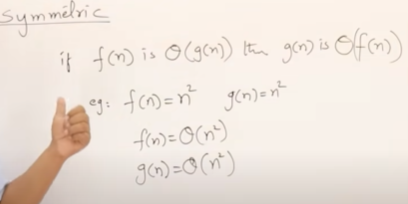 Symmetric
if f(n) is Θ(g(n)) then g(n) is Θ(f(n))
eg: f(n)=n² g(n)=n²
f(n)=Θ(n²)
g(n)=Θ(n²)